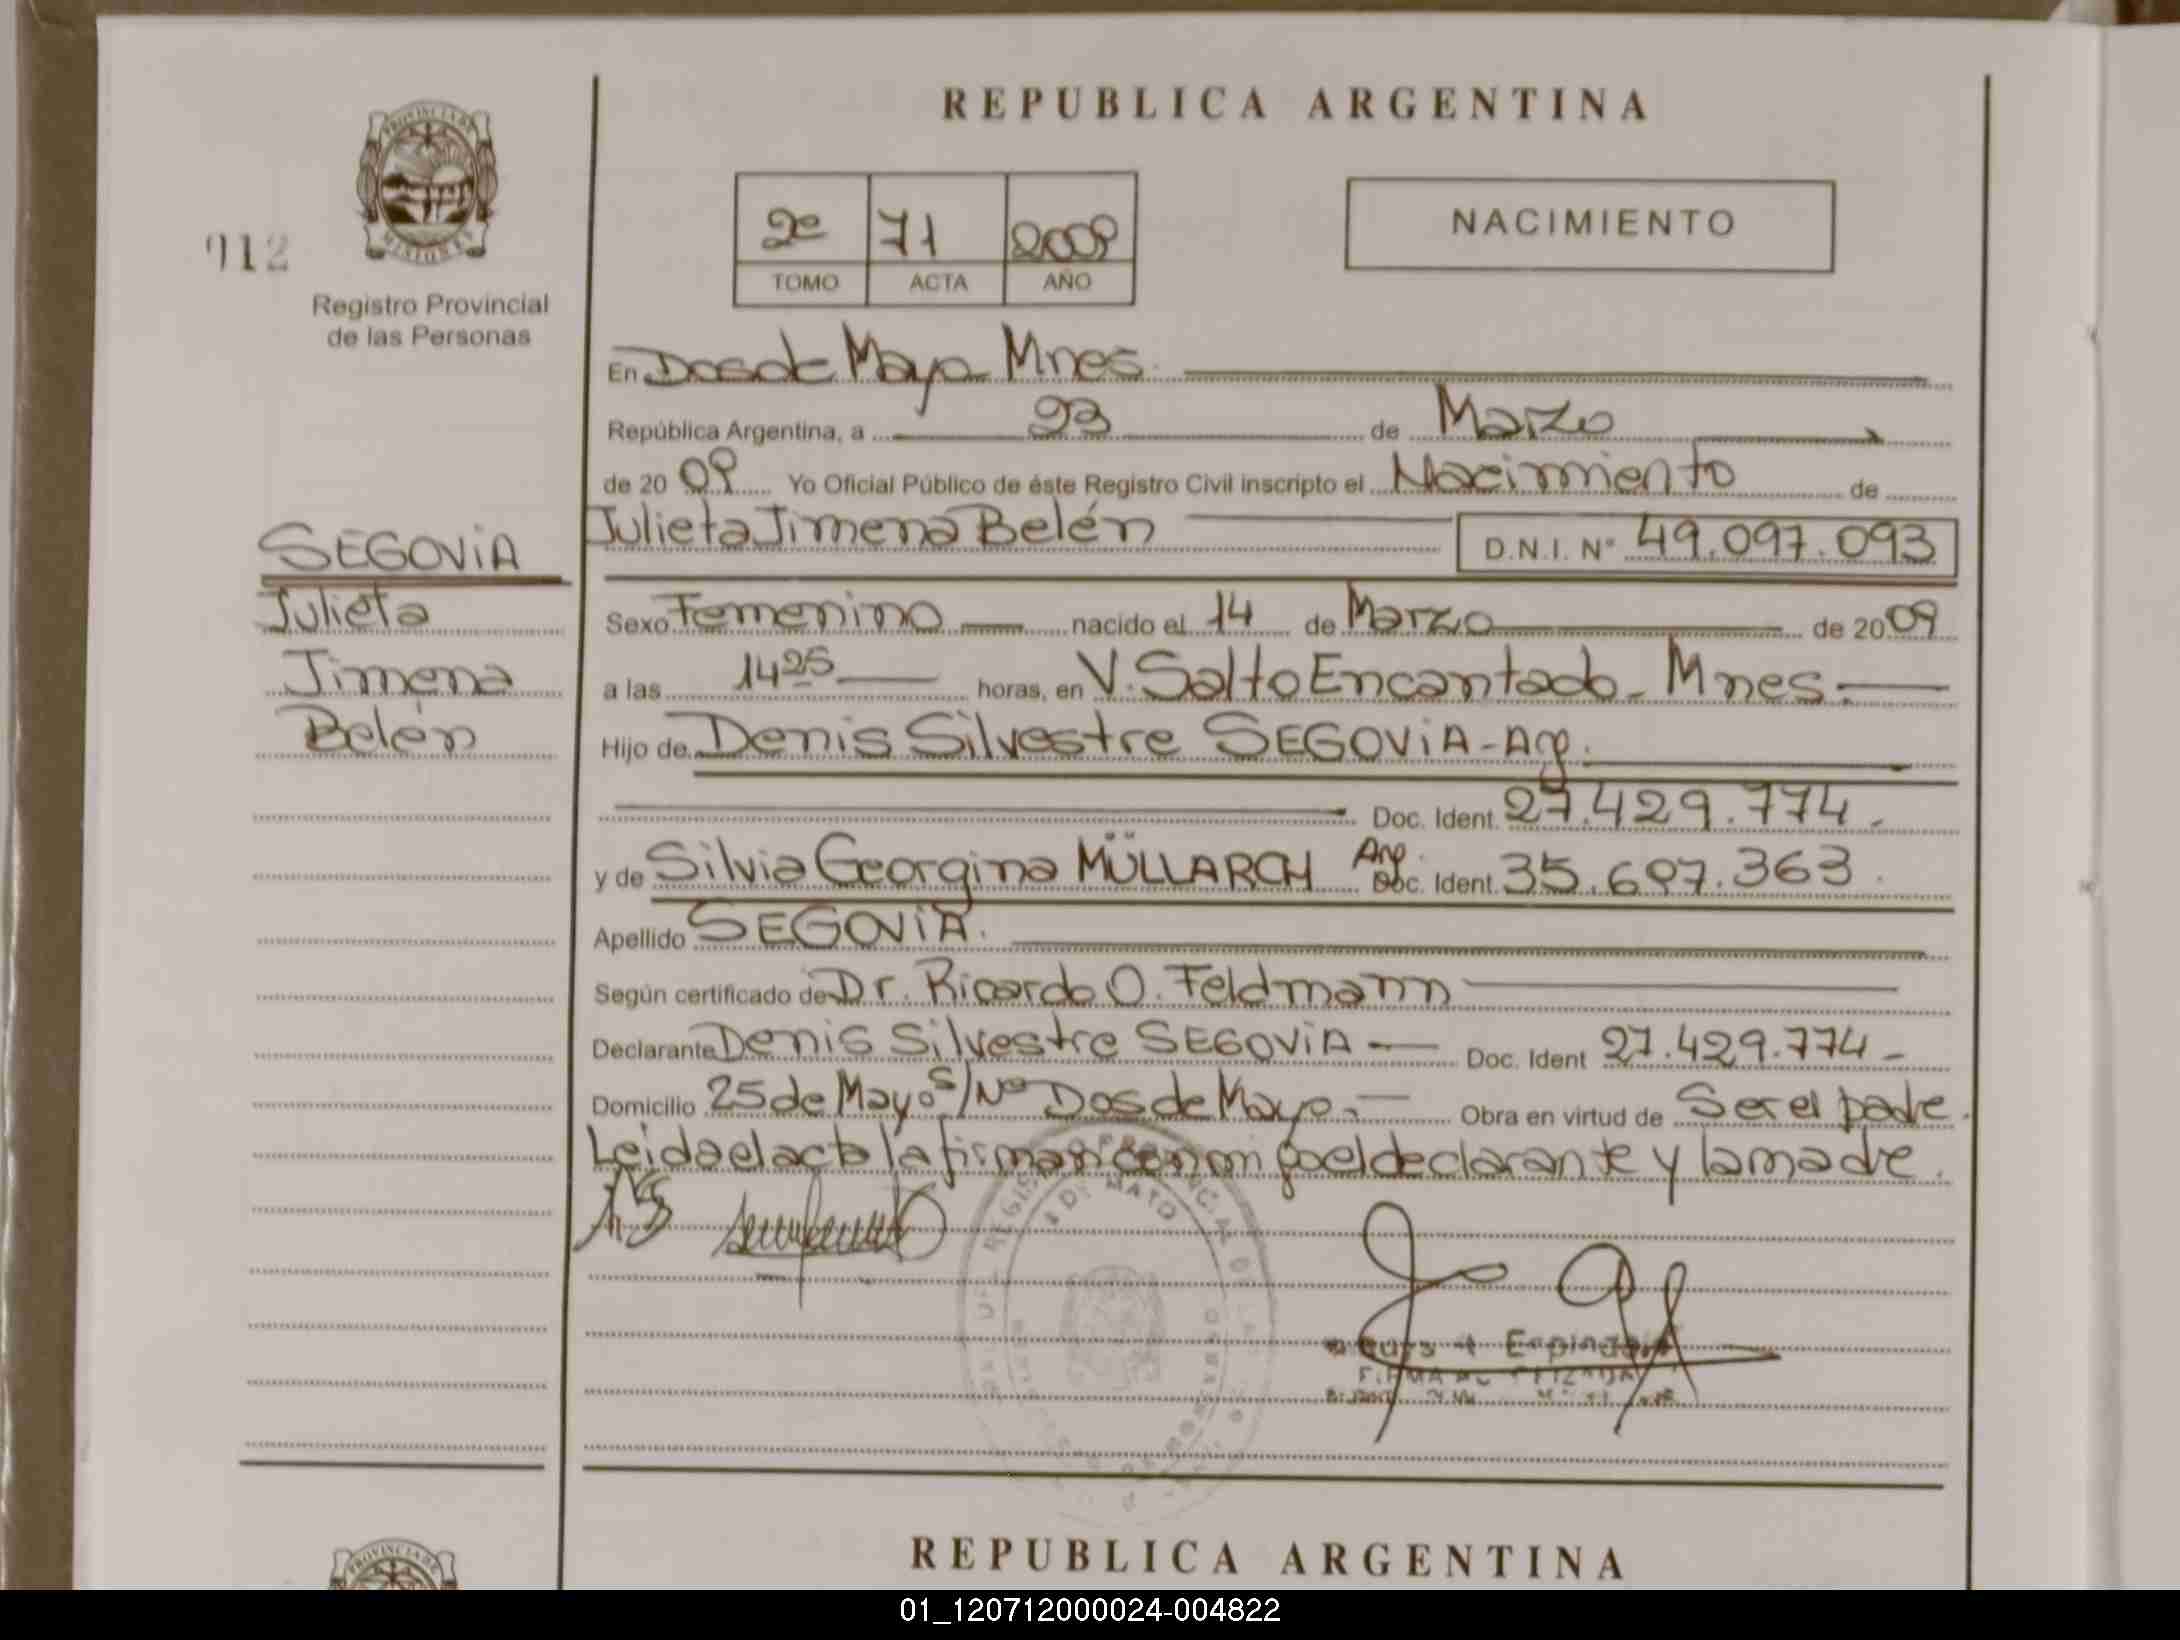 REPUBLICA ARGENTINA
PROVINCIA DE
MISIONES
912
Registro Provincial
de las Personas
2º 71 2009
TOMO ACTA AÑO
NACIMIENTO
En Dos de Mayo Mnes.
República Argentina, a 23 de Marzo
de 20 09 Yo Oficial Público de éste Registro Civil inscripto el Nacimiento de
Julieta Jimena Belén D.N.I. N° 49.097.093
SEGOViA
Julieta
Jimena
Belén
Sexo Femenino nacido el 14 de Marzo de 20 09
a las 14 25 horas, en V. Salto Encantado - Mnes.
Hijo de Denis Silvestre SEGOViA - Arg.
Doc. Ident. 27.429.774
y de Silvia Georgina MÜLLARCH Arg. Doc. Ident. 35.697.363
Apellido SEGOViA.
Según certificado de Dr. Ricardo O. Feldmann
Declarante Denis Silvestre SEGOViA Doc. Ident 27.429.774
Domicilio 25 de Mayo S/Nº Dos de Mayo. Obra en virtud de Ser el padre.
Leida el acta la firman con migo el declarante y la madre.
REGISTRO PROVINCIAL DE LAS
DE MAYO
Espindola
REPUBLICA ARGENTINA
PROVINCIA DE
01_120712000024-004822